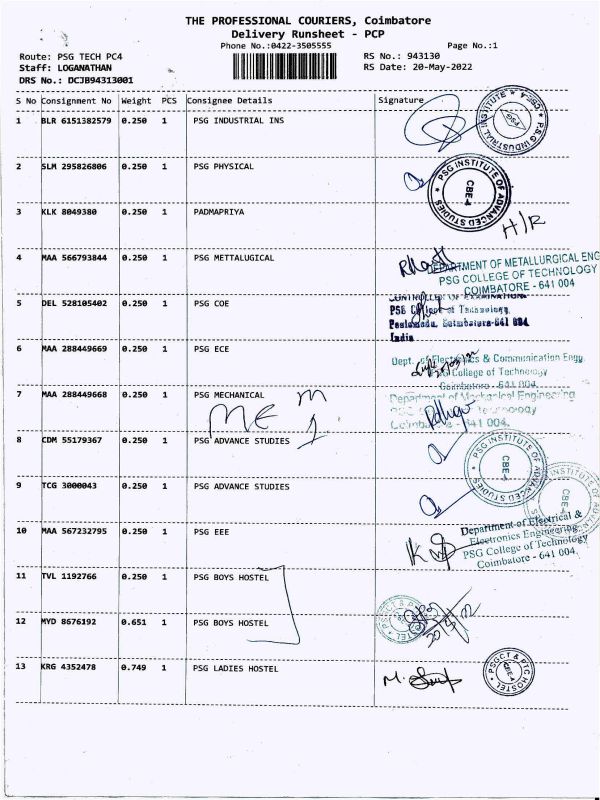 THE PROFESSIONAL COURIERS, Coimbatore
Delivery Runsheet - PCP
Phone No.:0422-3505555 Page No.:1
Route: PSG TECH PC4 RS No.: 943130
Staff: LOGANATHAN RS Date: 20-May-2022
DRS No.: DCJB94313001
S No Consignment No Weight PCS Consignee Details Signature
1 BLR 6151382579 0.250 1 PSG INDUSTRIAL INS
2 SLM 295826806 0.250 1 PSG PHYSICAL
PSG INSTITUTE OF ADVANCED STUDIES
CBE-4
3 KLK 8049380 0.250 1 PADMAPRIYA
H/R
4 MAA 566793844 0.250 1 PSG METTALUGICAL
DEPARTMENT OF METALLURGICAL ENG
PSG COLLEGE OF TECHNOLOGY
COIMBATORE - 641 004
5 DEL 528105402 0.250 1 PSG COE
CONTROLLER OF EXAMINATION
PSG College of Technology,
Peelamedu, Coimbatore-641 004
India
6 MAA 288449669 0.250 1 PSG ECE
Dept. of Electronics & Communication Engg.
PSG College of Technology
Coimbatore - 641 004
7 MAA 288449668 0.250 1 PSG MECHANICAL
Department of Mechanical Engineering
PSG College of Technology
Coimbatore - 641 004.
ME
8 CDM 55179367 0.250 1 PSG ADVANCE STUDIES
PSG INSTITUTE OF ADVANCED STUDIES
CBE-4
9 TCG 3000043 0.250 1 PSG ADVANCE STUDIES
10 MAA 567232795 0.250 1 PSG EEE
Department of Electrical &
Electronics Engineering
PSG College of Technology
Coimbatore - 641 004
11 TVL 1192766 0.250 1 PSG BOYS HOSTEL
12 MYD 8676192 0.651 1 PSG BOYS HOSTEL
13 KRG 4352478 0.749 1 PSG LADIES HOSTEL
PSGCT & PTC HOSTEL
CBE-4